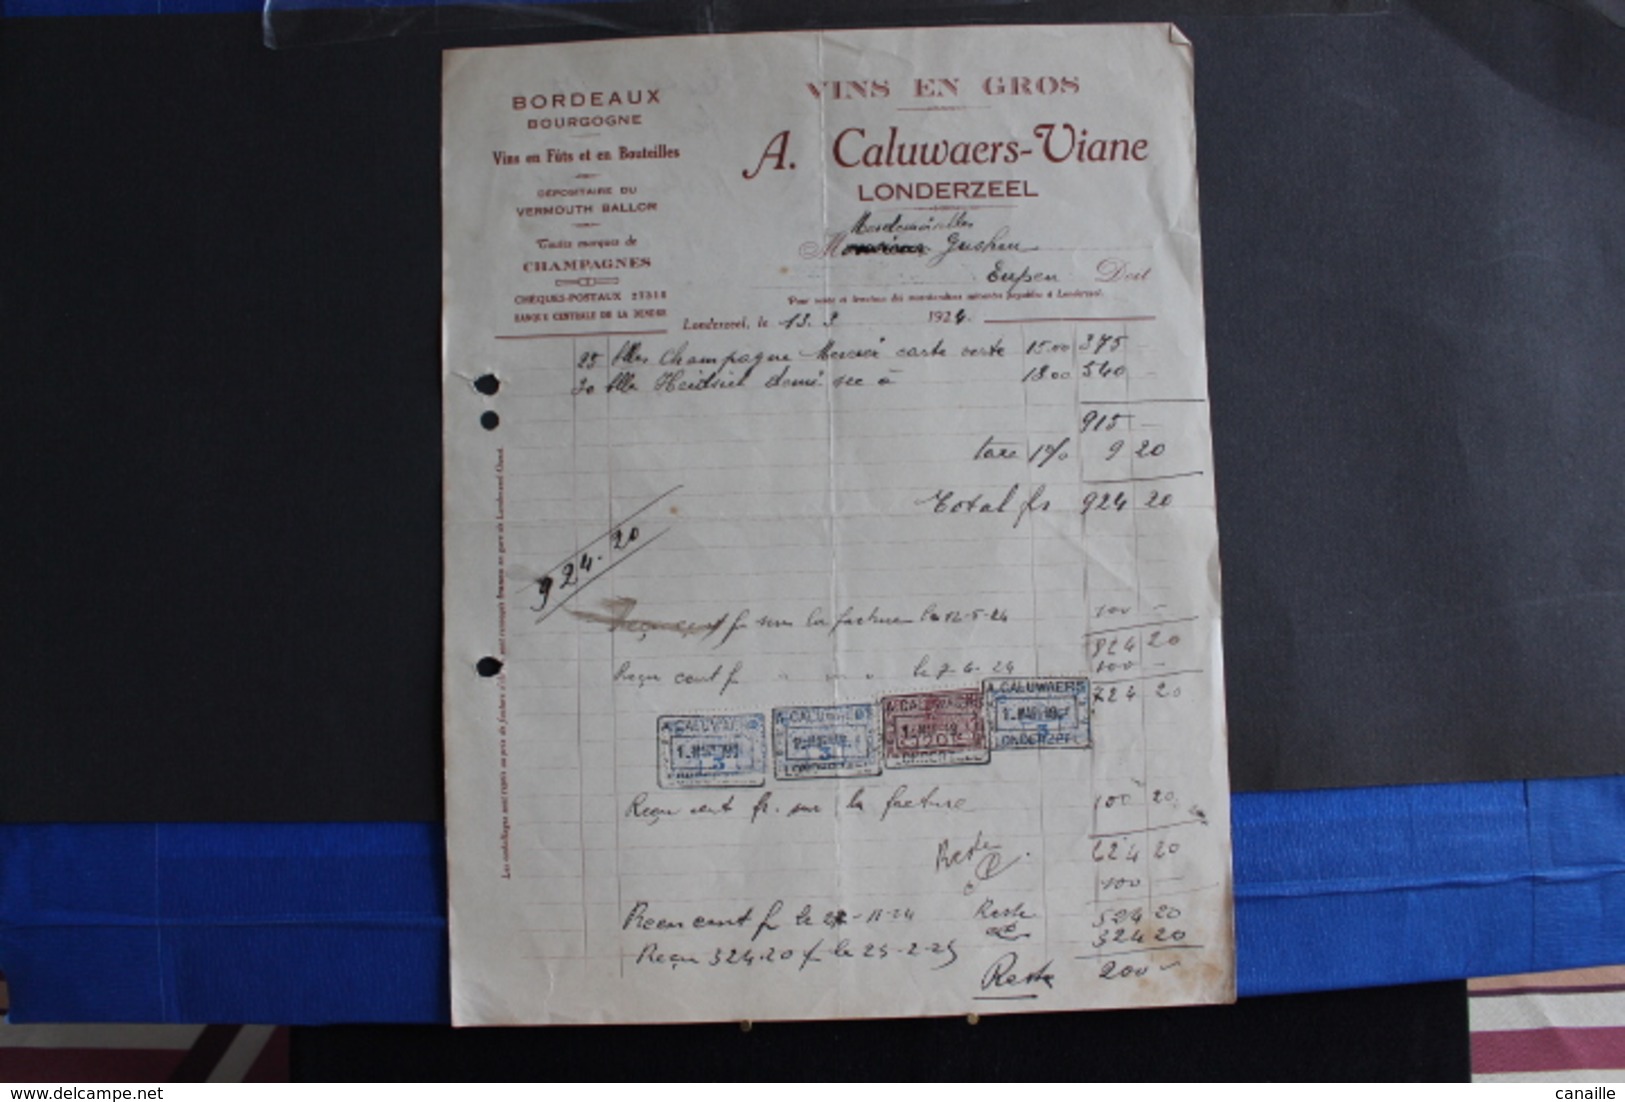 BORDEAUX
BOURGOGNE
Vins en Fûts et en Bouteilles
DÉPOSITAIRE DU
VERMOUTH BALLOR
Toutes marques de
CHAMPAGNES
CHÈQUES-POSTAUX 27318
BANQUE CENTRALE DE LA DENDRE
VINS EN GROS
A. Caluwaers-Viane
LONDERZEEL
Mesdemoiselles
Monsieur
Eupen Doit
Londerzeel, le 13.3 1924
25 blles Champagne Mercier carte verte 15.00 375 -
30 blle Heidsick demi sec à 18.00 540 -
915 -
taxe 1% 9 20
Total frs 924 20
924.20
Reçu cent fr sur la facture le 12-5-24 100 -
824 20
Reçu cent fr " " " le 7-6-24 100 -
724 20
A. CALUWAERS
3
A. CALUWAERS
3
LONDERZEEL
A. CALUWAERS
20
LONDERZEEL
A. CALUWAERS
3
LONDERZEEL
Reçu cent fr. sur la facture 100 20
Reste 624 20
100 -
Reçu cent fr le 22-11-24 Reste 524 20
Reçu 324.20 fr le 25-2-25 324 20
Reste 200 -
delcampe.net
canaille